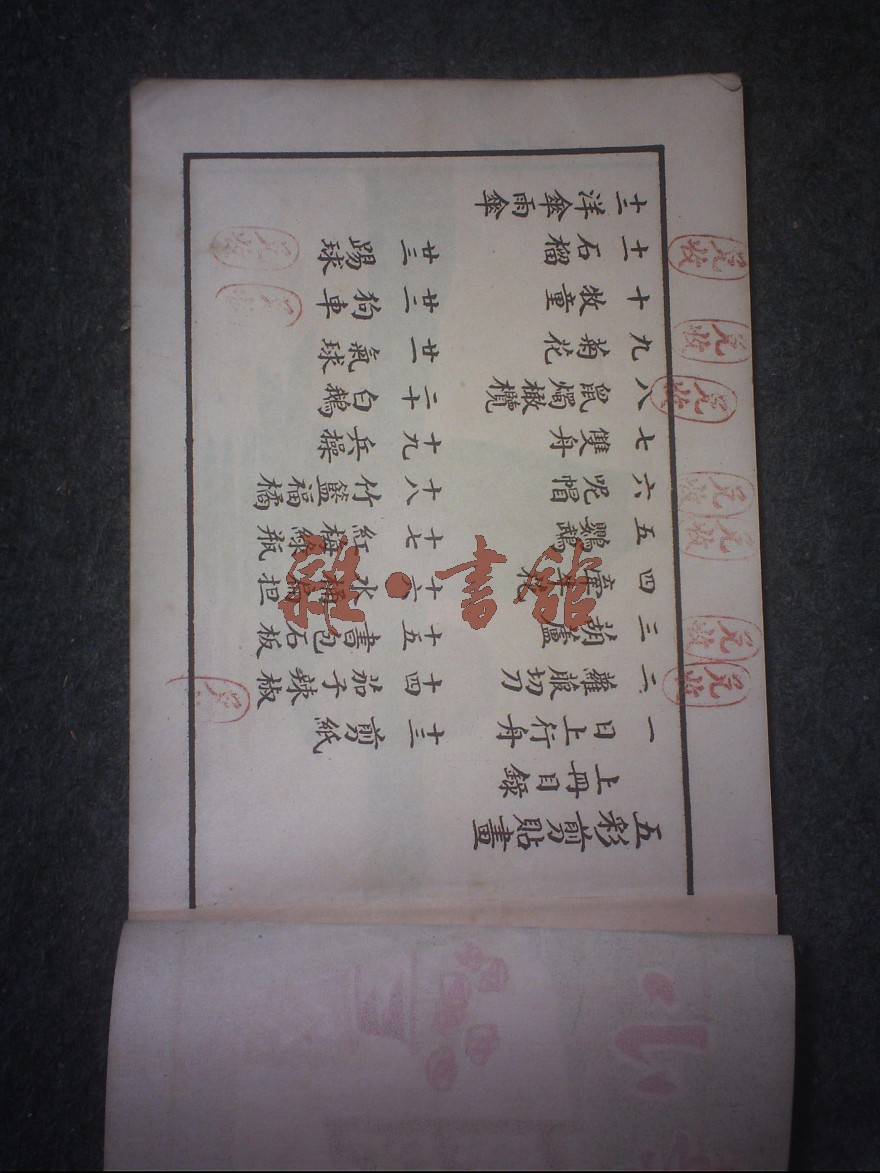 五彩剪貼畫
上冊目錄
一 日上行舟
二 蘿服切刀
三 葫蘆
四
五 鸚鵡
六 呢帽
七 雙舟
八 鼠燭橄欖
九 菊花
十 牧童
十一 石榴
十二 洋傘雨傘
十三 剪紙
十四 茄子辣椒
十五 書包石板
十六 水桶 担
十七 紅梅綠瓶
十八 竹籃福橘
十九 兵操
二十 白鵝
廿一 氣球
廿二 狗車
廿三 踢球
書